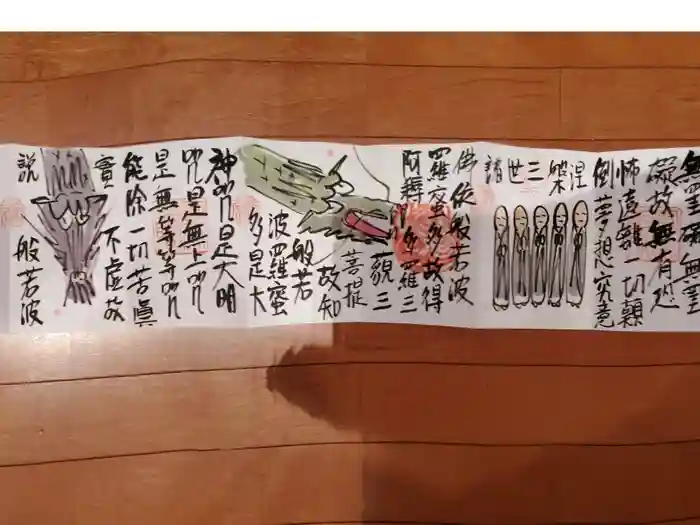 無罣礙無罣
礙故無有恐
怖遠離一切顛
倒夢想究竟
涅槃三世諸
佛依般若波
羅蜜多故得
阿耨多羅三
藐三
菩提
故知
般若
波羅蜜
多是大
神呪是大明
呪是無上呪
是無等等呪
能除一切苦眞
實不虛故
說般若波